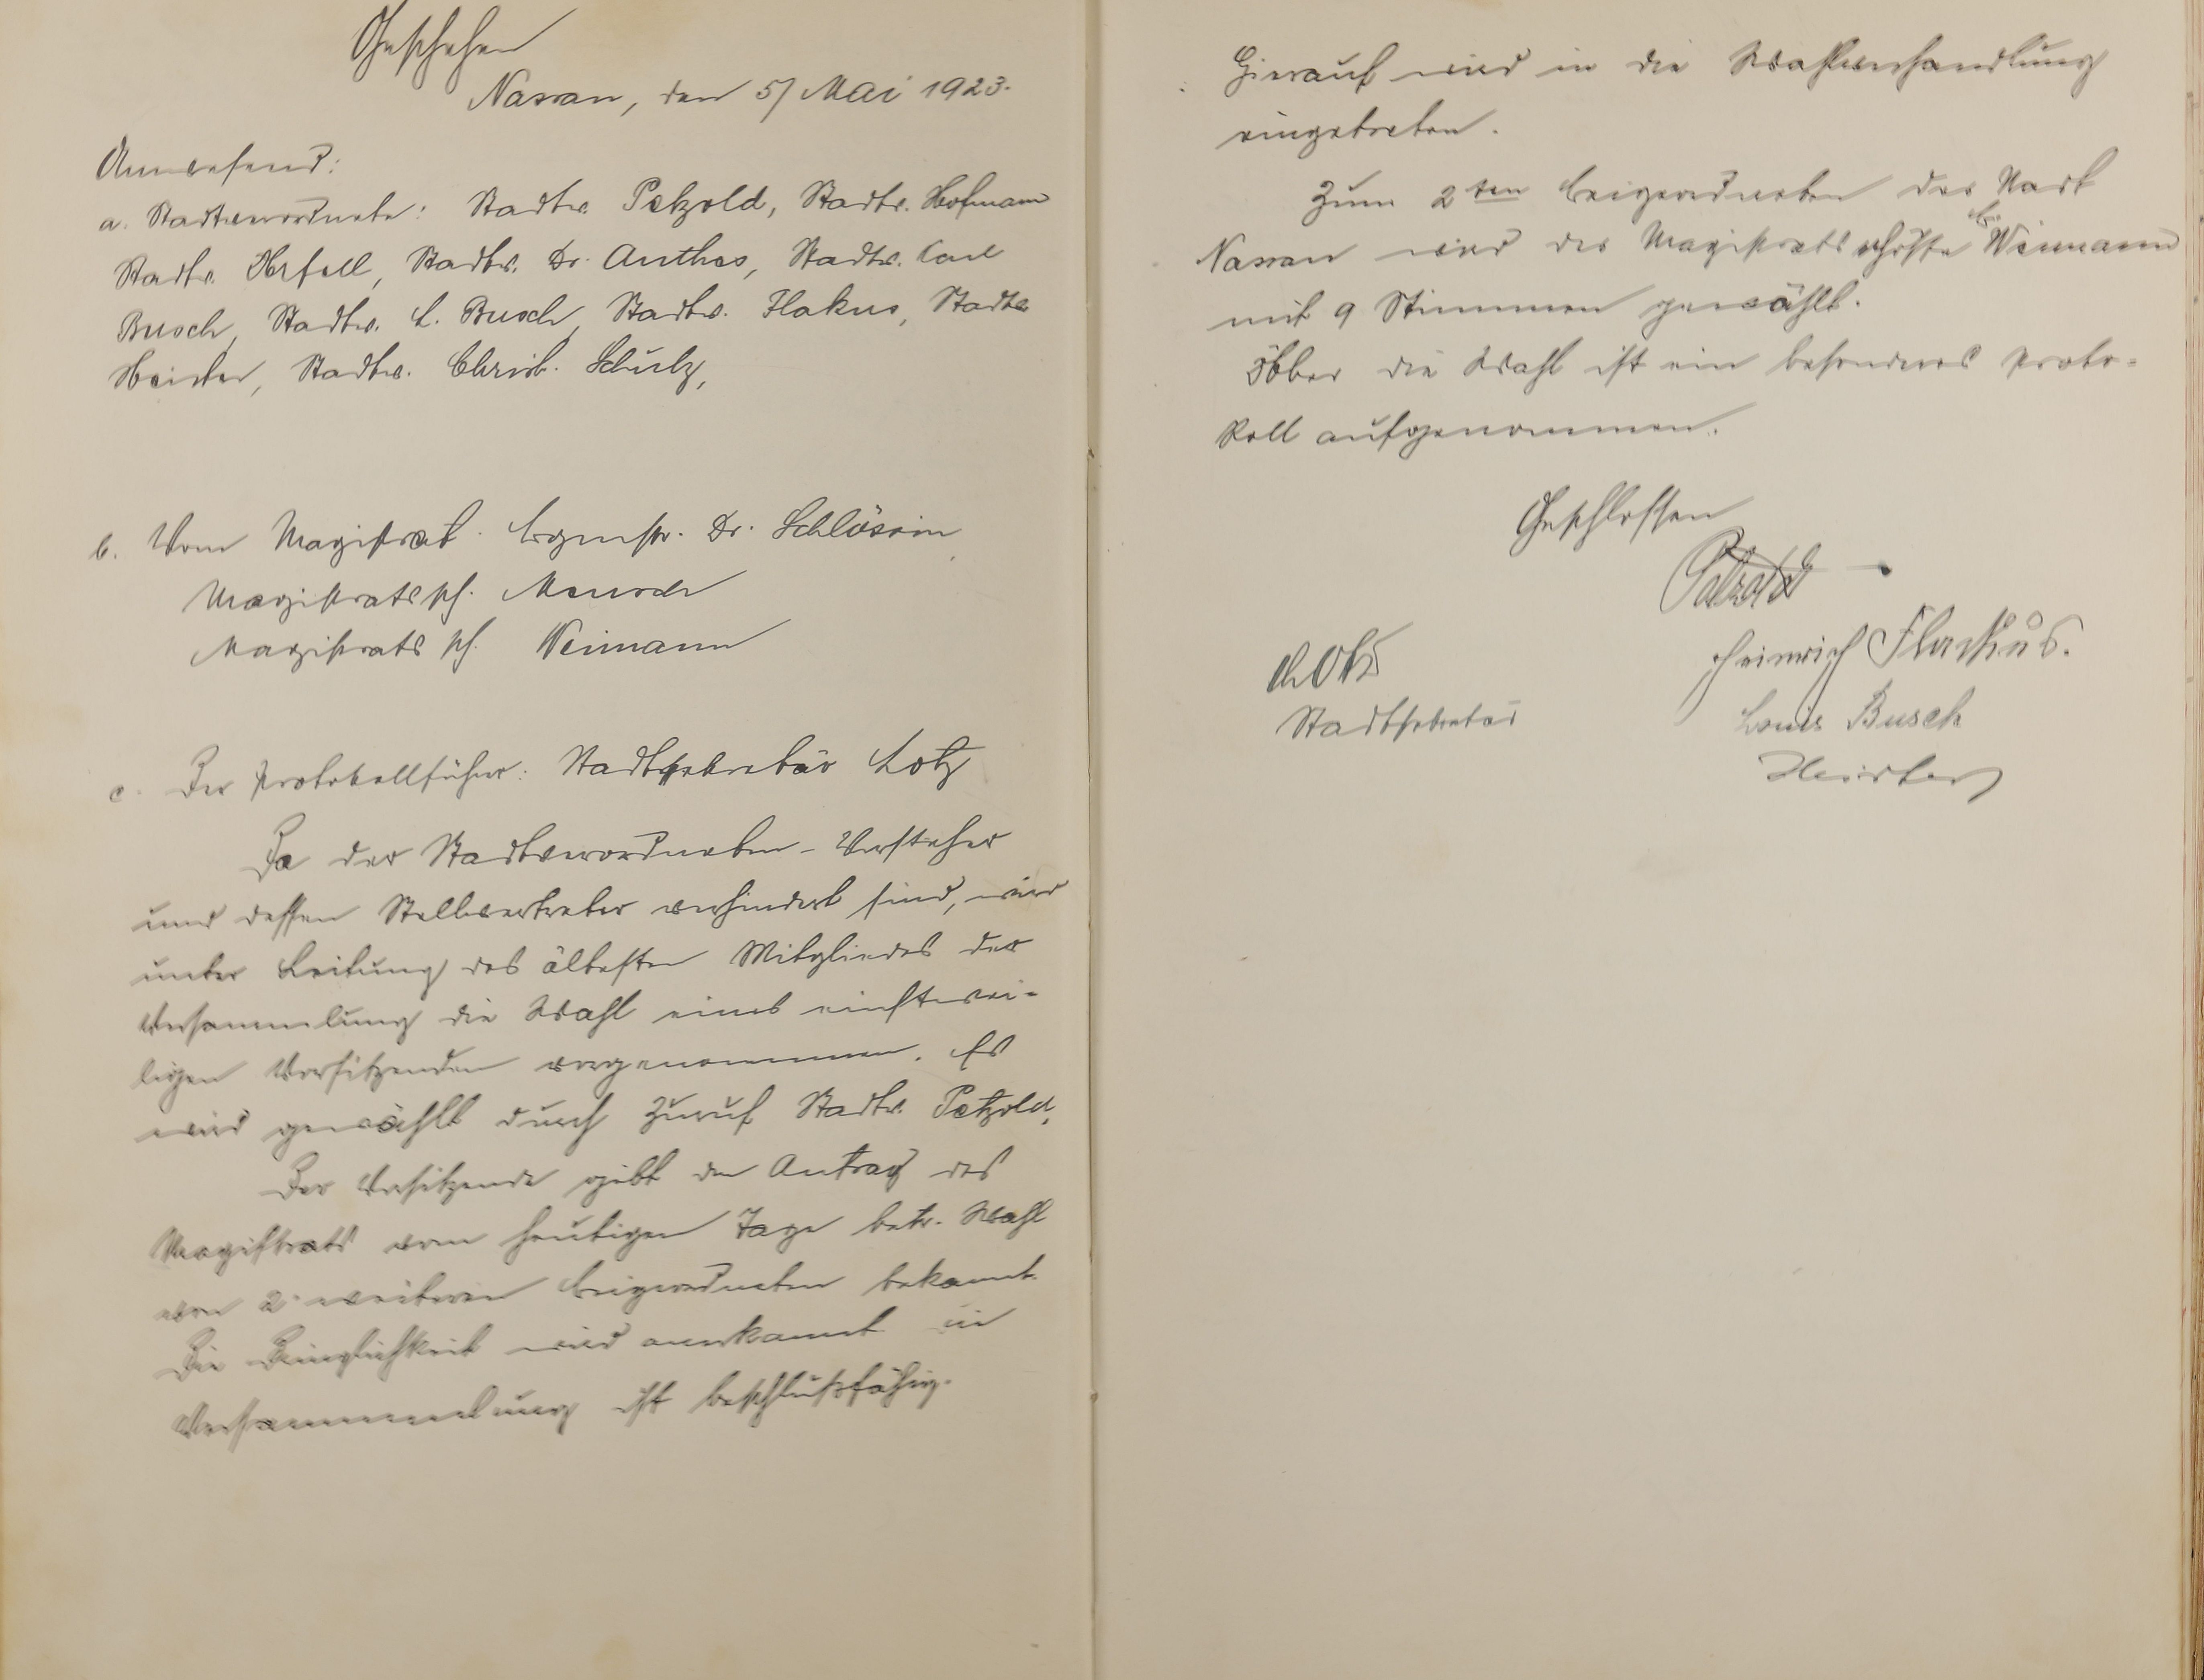 Geschehen
Nassau, den 5/ Mai 1923.
Anwesend:
a. Stadtverordnete: Stadtv. Petzold, Stadtv. Hofmann
Stadtv. Obrfell, Stadtv. Dr. Anthes, Stadtv. Carl
Busch, Stadtv. L. Busch, Stadtv. Flakus, Stadtv.
Heister, Stadtv. Christ. Schulz,
b. Vom Magistrat. Brgmstr. Dr. Schlössin
Magistratssch. Mensch
Magistratssch. Weimann
c. Der Protokollführer: Stadtsekretär Lotz
Da der Stadtverordneten-Vorsteher
und dessen Stellvertreter verhindert sind, wird
unter Leitung des ältesten Mitgliedes der
Versammlung die Wahl eines einstwei-
ligen Vorsitzenden vorgenommen. Es
wird gewählt durch Zuruf Stadtv. Petzold.
Der Vorsitzende gibt den Antrag des
Magistrats vom heutigen Tage betr. Wahl
von 2. weiteren Beigeordneten bekannt.
Die Dringlichkeit wird anerkannt. Die
Versammlung ist beschlußfähig.
Hierauf wird in die Wahlverhandlung
eingetreten.
Zum 2ten Beigeordneten der Stadt
Nassau wird der Magistratsschöffe Weimann
mit 9 Stimmen gewählt.
Über die Wahl ist ein besonderes Proto-
koll aufgenommen.
Geschlossen
Petzold
Heinrich Flackus.
Lotz
Louis Busch
Stadtsekretär
Heister